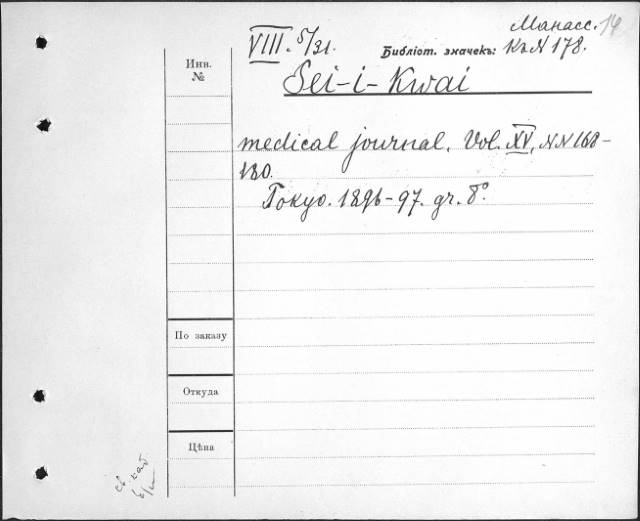 Манасс. 14
VIII. 5/31. Библіот. значекъ: К2 N 178.
Инв.
№
Sei-i-Kwai
medical journal. Vol. XV, NN 168-
180.
Tokyo. 1896-97. gr. 8°.
По заказу
Откуда
Цѣна